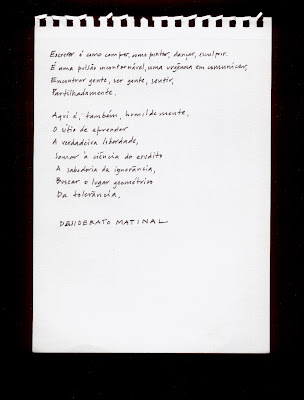 Escrever é como compor, como pintar, dançar, esculpir.
É uma pulsão incontornável, uma urgência em comunicar,
Encontrar gente, ser gente, sentir,
Partilhadamente.
Aqui é, também, humildemente,
O sítio de aprender
A verdadeira liberdade,
Somar à ciência do erudito
A sabedoria da ignorância,
Buscar o lugar geométrico
Da tolerância.
DESIDERATO MATINAL